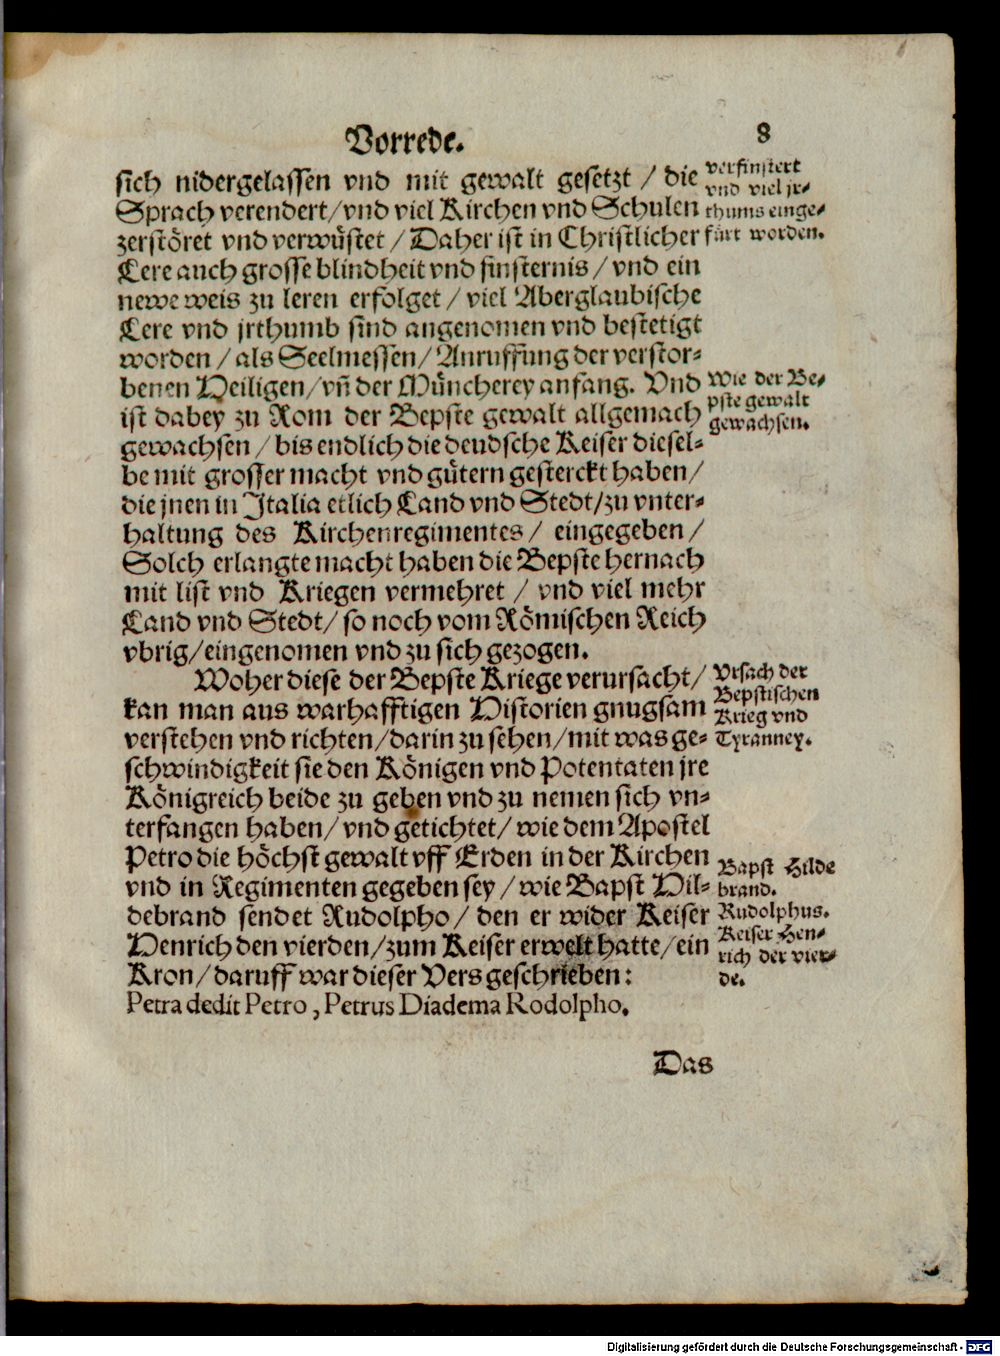 Vorrede. 8
sich nidergelassen vnd mit gewalt gesetzt / die
Sprach verendert/vnd viel Kirchen vnd Schulen
zerstöret vnd verwüstet / Daher ist in Christlicher
Lere auch grosse blindheit vnd finsternis / vnd ein
newe weis zu leren erfolget / viel Aberglaubische
Lere vnd jrthumb sind angenomen vnd bestetigt
worden / als Seelmessen / Anruffung der verstor-
benen Heiligen / vñ der Müncherey anfang. Vnd
ist dabey zu Rom der Bepste gewalt allgemach
gewachsen / bis endlich die deudsche Keiser diesel-
be mit grosser macht vnd gütern gesterckt haben /
die jnen in Italia etlich Land vnd Stedt/zu vnter-
haltung des Kirchenregimentes / eingegeben /
Solch erlangte macht haben die Bepste hernach
mit list vnd Kriegen vermehret / vnd viel mehr
Land vnd Stedt / so noch vom Römischen Reich
vbrig/eingenomen vnd zu sich gezogen.
Woher diese der Bepste Kriege verursacht/
kan man aus warhafftigen Historien gnugsam
verstehen vnd richten/darin zu sehen/mit was ge-
schwindigkeit sie den Königen vnd Potentaten jre
Königreich beide zu geben vnd zu nemen sich vn-
terfangen haben/ vnd getichtet/ wie dem Apostel
Petro die höchst gewalt vff Erden in der Kirchen
vnd in Regimenten gegeben sey / wie Bapst Hil-
debrand sendet Rudolpho / den er wider Keiser
Henrich den vierden/zum Keiser erwelt hatte/ein
Kron/daruff war dieser Vers geschrieben:
Petra dedit Petro, Petrus Diadema Rodolpho.
Das
verfinstert
vnd viel jr-
thums einge-
fürt worden.
Wie der Be-
pste gewalt
gewachsen.
Vrsach der
Bepstischen
Krieg vnd
Tyranney.
Bapst Hilde
brand.
Rudolphus.
Keiser Hen-
rich der vier-
de.
Digitalisierung gefördert durch die Deutsche Forschungsgemeinschaft - DFG